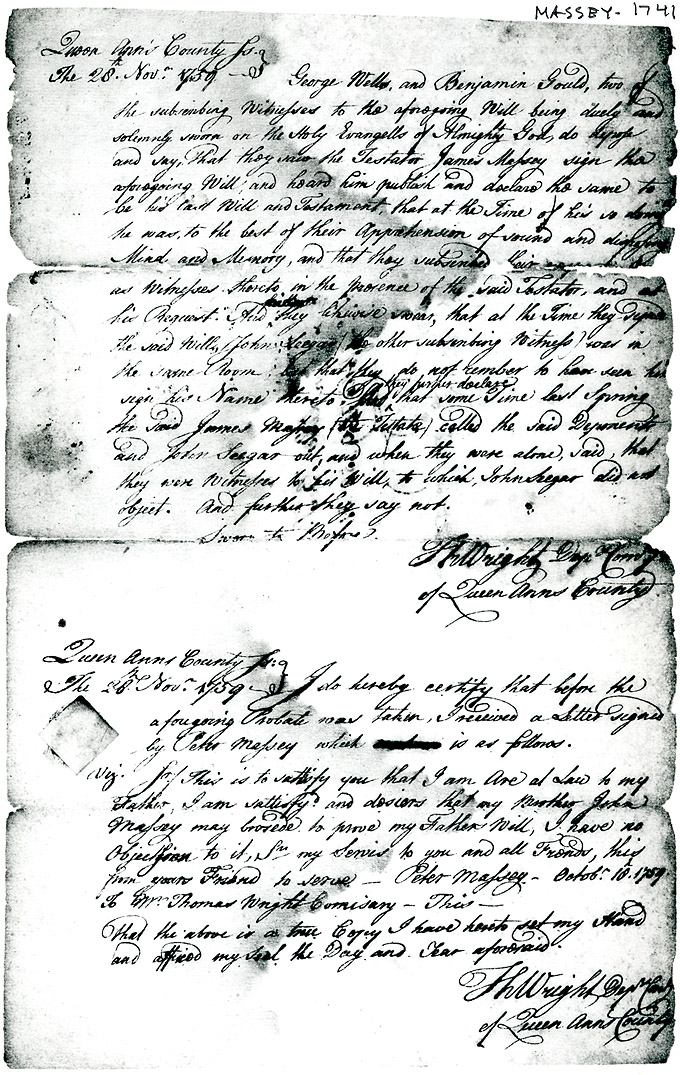 MASSEY - 1741
Queen Ann's County Ss.
The 28th Novr. 1759 George Wells, and Benjamin Gould, two of
the subscribing Witnesses to the aforegoing Will being duely and
solemnly sworn on the Holy Evangells of Almighty God, do depose
and say, That they saw the Testator James Massey sign the
aforegoing Will, and heard him publish and declare the same to
be his last Will and Testament, that at the Time of his so doing
he was, to the best of their Apprehension of sound and disposing
Mind and Memory, and that they subscribed their
as Witnesses thereto, in the presence of the said Testator, and at
his Request. And they likewise swear, that at the Time they signed
the said Will, John Seegar (the other subscribing Witness) was in
the same Room; but that they do not rember to have seen him
sign his Name thereto. they further declare that some Time last Spring
the said James Massey (the Testator) called the said Deponents
and John Seegar out, and when they were alone, said, that
they were Witnesses to his Will, to which, John Seegar did not
object. And further they say not.
Sworn to Before
ThWright Depy Comry
of Queen Anns County
Queen Anns County Ss.
The 28th Novr. 1759 I do hereby certify that before the
aforegoing Probate was taken, I received a Letter signed
by Peter Massey which is as follows.
Viz. Sr/ This is to sattisfy you that I am Are at Law to my
Father, I am sattisfyd and desiers that my Brother John
Massey may prosede to prove my Father Will, I have no
Objection to it, Sir my Servis to you and all Friends, this
from yours Friend to serve — Peter Massey - Octobr. 18. 1759
To Mr. Thomas Wright Comisary - This —
That the above is a true Copy I have hereto set my Hand
and affixed my Seal the Day and Year aforesaid
ThWright Depy Comry
of Queen Anns County